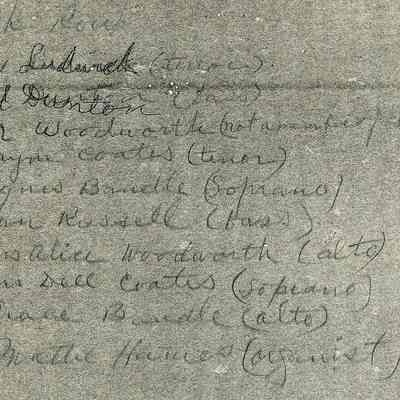 k Row
Ludwick (tenor).
d Dunton (bass)
r Woodworth (not a member
ayne Coates (tenor)
gnes Brudle (Soprano)
an Russell (bass).
s Alice Woodworth (alto)
Dell Coates (Soprano)
race Brudle (alto)
Mattie Haines (organist)